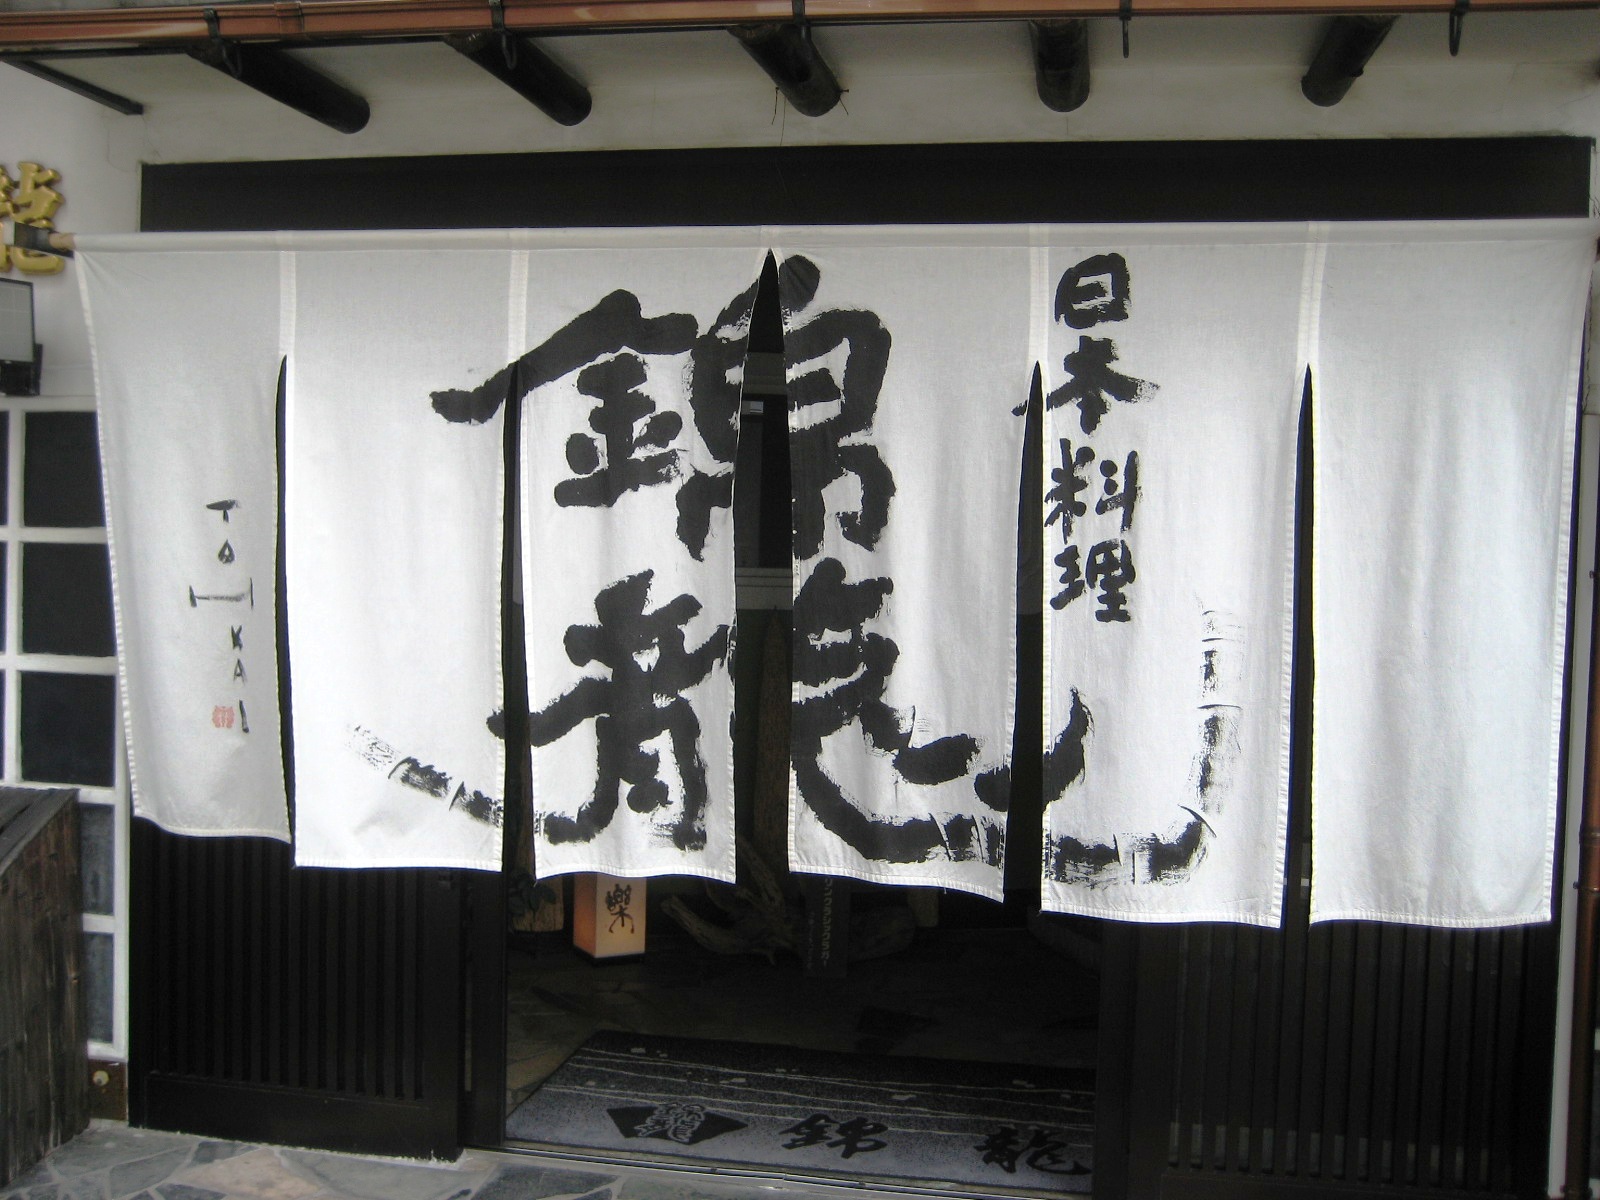 日本料理
錦龍
TOMI KAI
龍
樂
錦龍